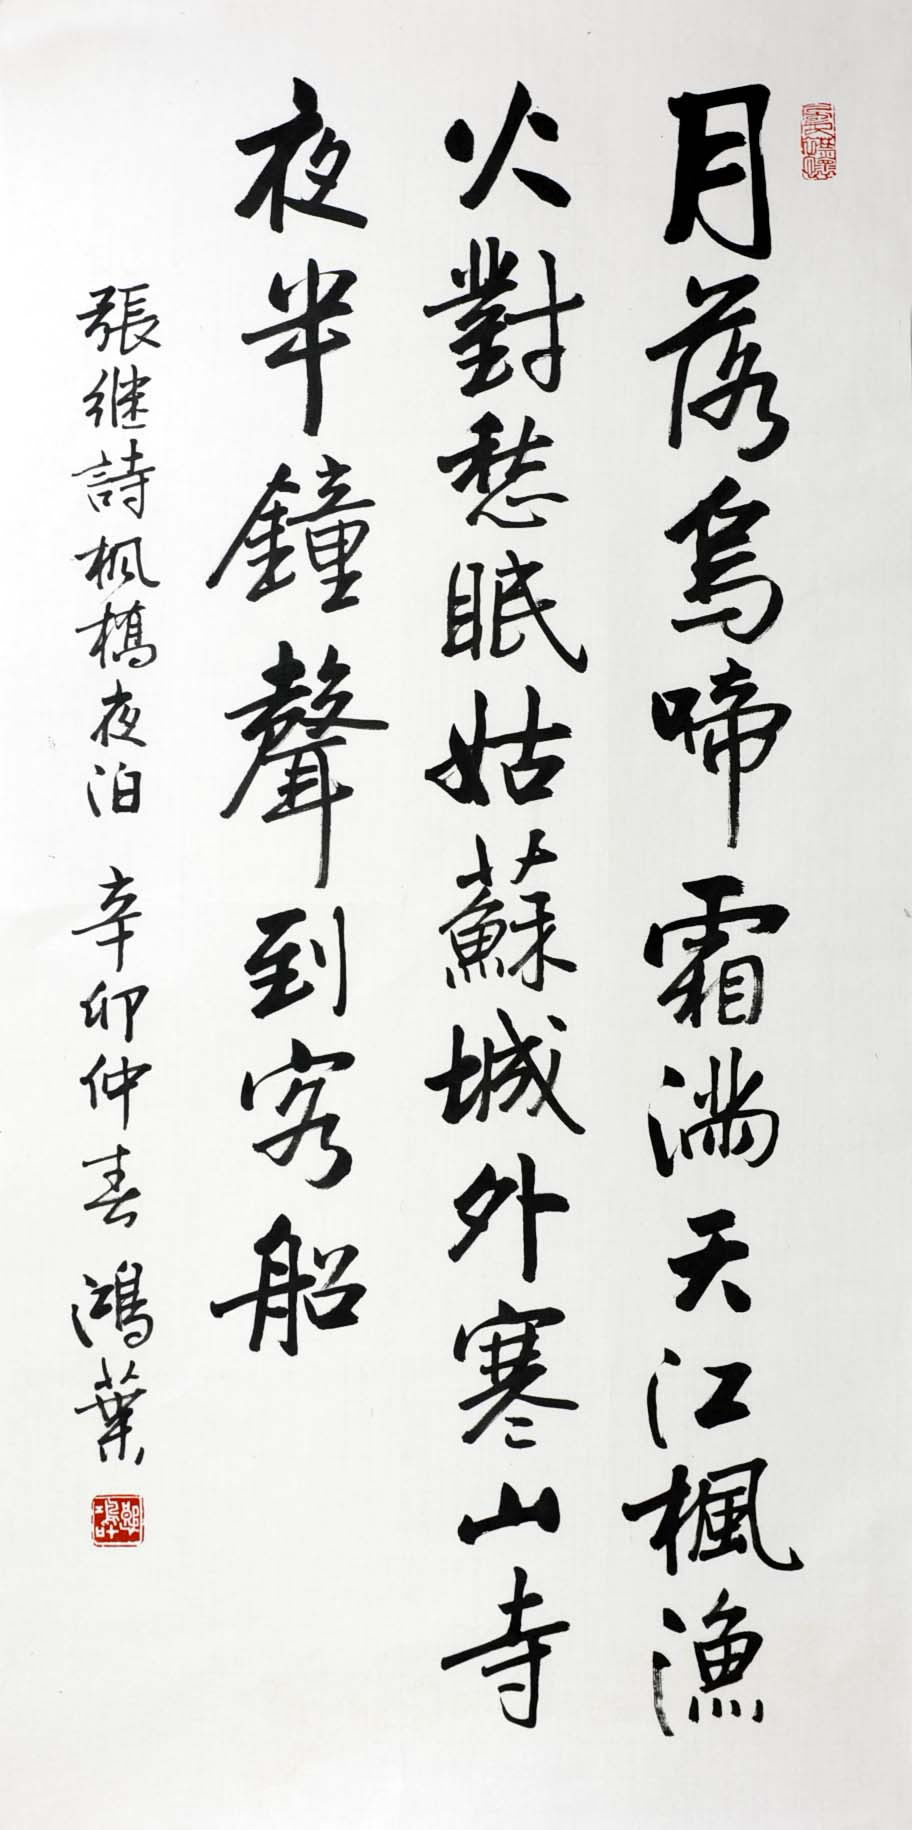 月落烏啼霜満天江楓漁
火對愁眠姑蘇城外寒山寺
夜半鐘聲到客船
張继詩楓橋夜泊 辛卯仲春 鴻葉